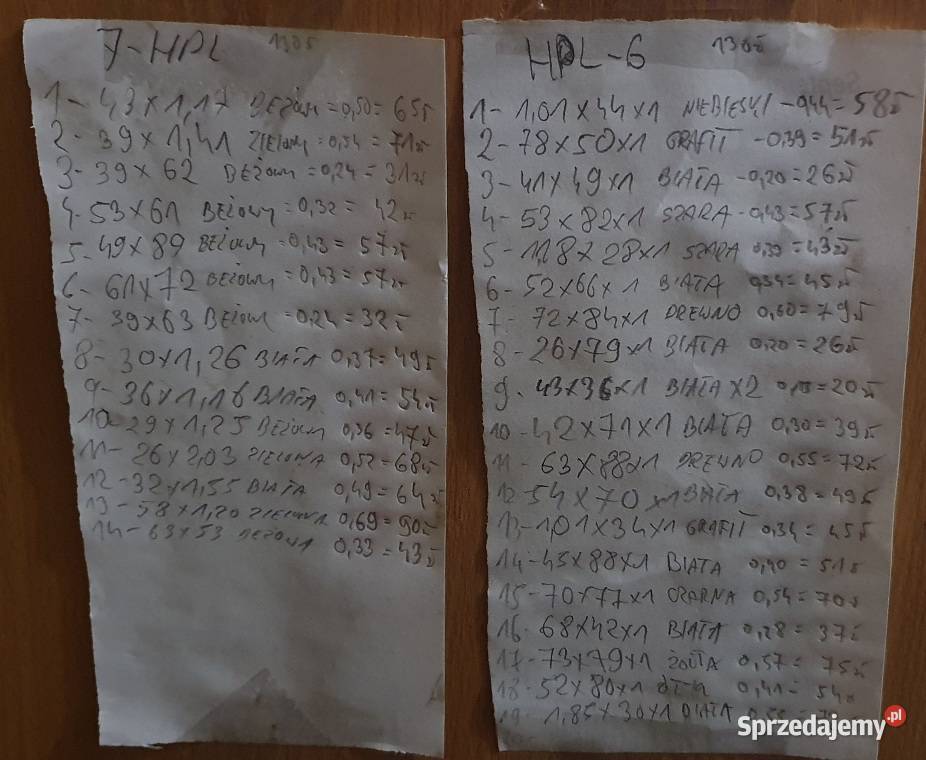 7-HPL 130zł
1- 43x1,17 BEŻOWY =0,50= 65zł
2- 39x1,41 ZIELONY =0,54= 71zł
3- 39x62 BEŻOWY =0,24= 31zł
4- 53x61 BEŻOWY =0,32= 42zł
5- 49x89 BEŻOWY =0,43= 57zł
6- 61x72 BEŻOWY =0,43= 57zł
7- 39x63 BEŻOWY =0,24= 32zł
8- 30x1,26 BIAŁA 0,37= 49zł
9- 36x1,16 BIAŁA 0,41= 54zł
10- 29x1,25 BEŻOWY 0,36=47zł
11- 26x2,03 ZIELONA 0,52= 68zł
12- 32x1,55 BIAŁA 0,49= 64zł
13- 58x1,20 ZIELONA 0,69= 90zł
14- 63x53 BEŻOWA 0,33= 43zł
HPL-6 130zł
1- 1,01x44x1 NIEBIESKI -0,44= 58zł
2- 78x50x1 GRAFIT -0,39= 51zł
3- 41x49x1 BIAŁA -0,20= 26zł
4- 53x82x1 SZARA -0,43= 57zł
5- 1,18x28x1 SZARA 0,33= 43zł
6- 52x66x1 BIAŁA 0,34= 45zł
7- 72x84x1 DREWNO 0,60= 79zł
8- 26x79x1 BIAŁA 0,20= 26zł
9. 43x36x1 BIAŁA x2 0,15= 20zł
10- 42x71x1 BIAŁA 0,30= 39zł
11- 63x88x1 DREWNO 0,55= 72zł
12- 54x70x1 BIAŁA 0,38= 49zł
13- 1,01x34x1 GRAFIT 0,34= 45zł
14- 45x88x1 BIAŁA 0,40= 51zł
15- 70x77x1 CZARNA 0,54= 70zł
16- 68x42x1 BIAŁA 0,28= 37zł
17- 73x79x1 ŻÓŁTA 0,57= 75zł
18- 52x80x1 0,41= 54zł
19- 1,85x30x1 BIAŁA
Sprzedajemy.pl